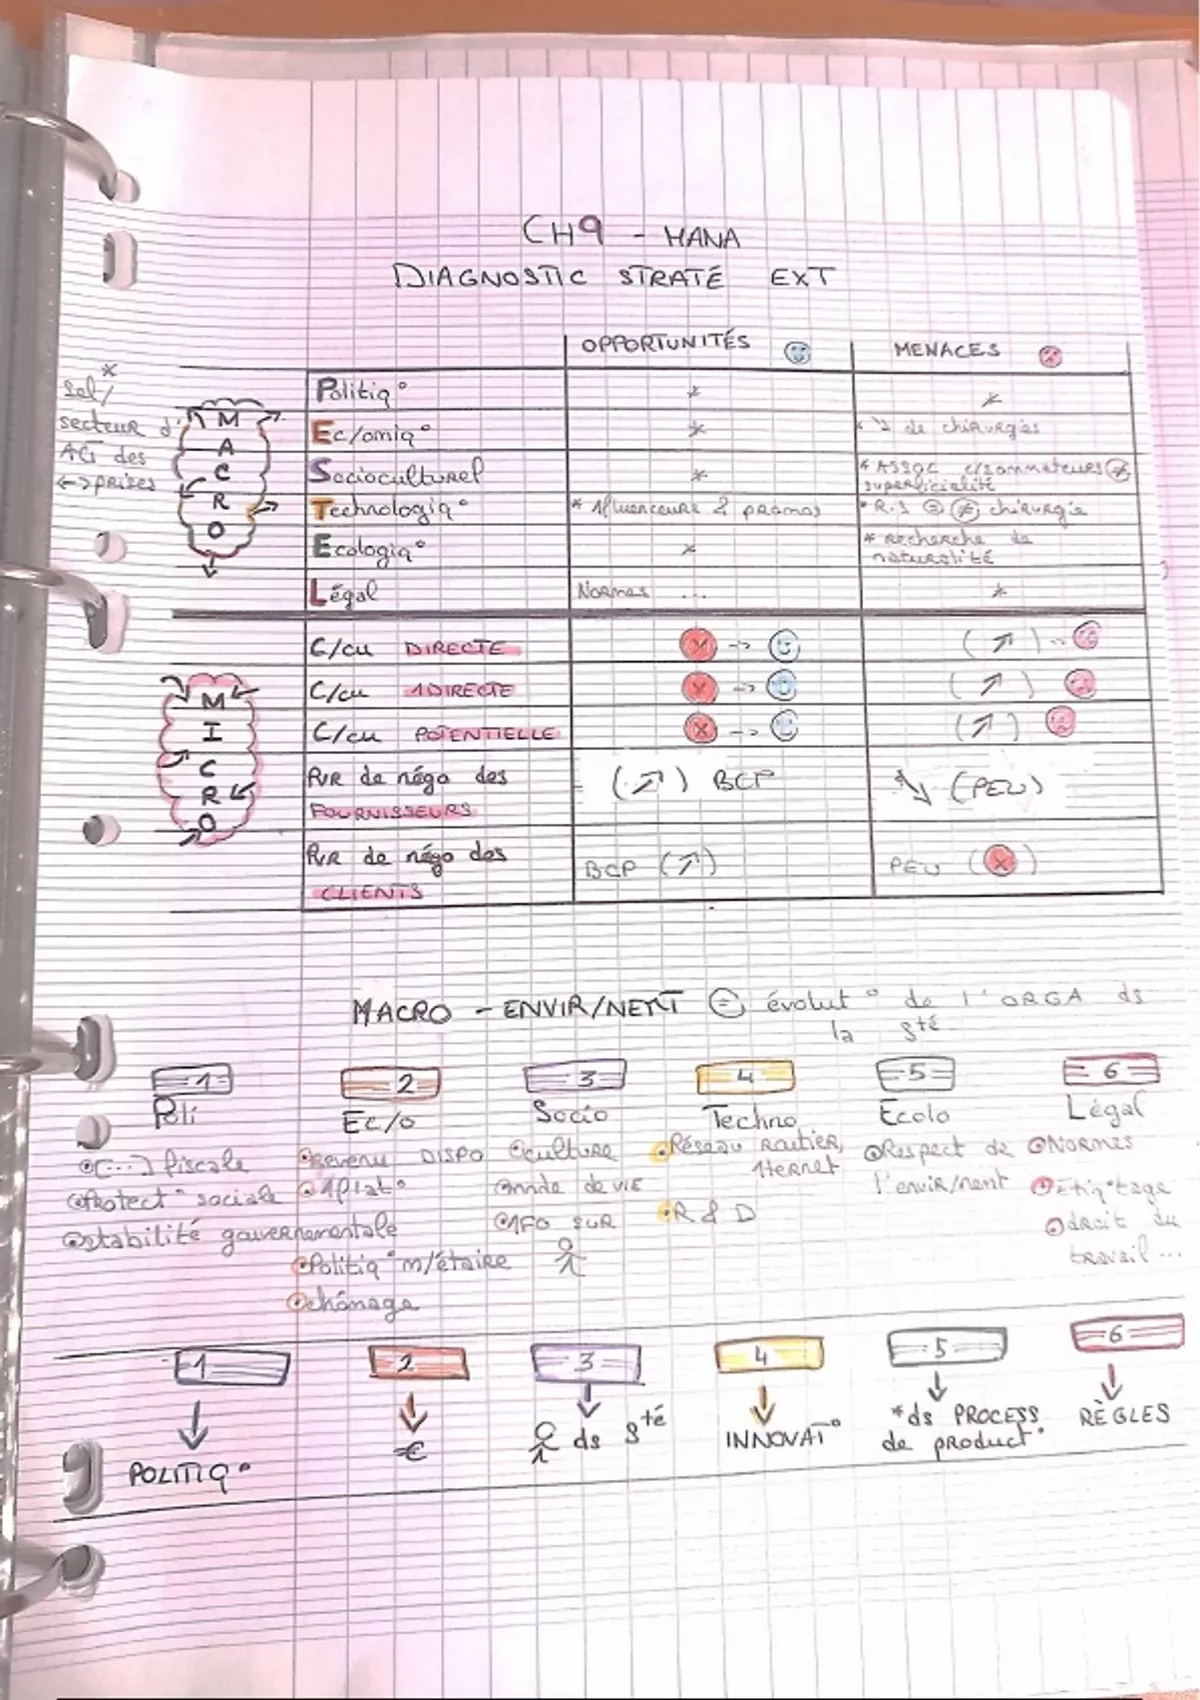 CH9 - MANA
DIAGNOSTIC STRATÉ EXT
OPPORTUNITÉS MENACES
*
Sel/
secteur d'
ACT des
<->prises
MACRO
Politiq° * *
Ec/omiq° * * ↘ de chirurgies
Socioculturel * * ASSOC c/sommateurs ≠ superficialité
Technologiq° * 1fluenceurs & promos * R.S = ≠ chirurgie
Ecologiq° * * Recherche de naturalité
Légal Normes ... *
MICRO
C/cu DIRECTE x -> (↗) ->
C/cu 1DIRECTE x -> (↗)
C/cu POTENTIELLE x -> (↗)
PVR de négo des FOURNISSEURS (↗) BCP ↘ (PEU)
PVR de négo des CLIENTS BCP (↗) PEU (x)
MACRO - ENVIR/NENT = évolut° de l'ORGA ds
la sté
1 2 3 4 5 6
Poli Ec/o Socio Techno Ecolo Légal
(...) fiscale
Protect° sociale
stabilité gouvernementale
Revenu DISPO
1flat°
Politiq° m/étaire
chômage
culture
mode de vie
1FO SUR
Réseau routier,
1ternet
R & D
Respect de
l'envir/nent
Normes
Etiq°tage
droit du
travail ...
1 2 3 4 5 6
↓ ↓ ↓ ↓ ↓ ↓
POLITIQ°
€
ds sté
INNOVAT°
*ds PROCESS
de product°
RÈGLES